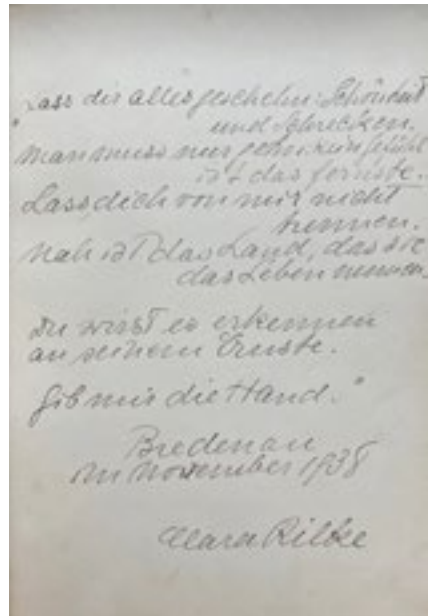 „Lass dir alles geschehn: Schönheit
und Schrecken.
Man muss nur gehn: kein Gefühl
ist das fernste.
Lass dich von mir nicht
trennen.
Nah ist das Land, das sie
das Leben nennen.
Du wirst es erkennen
an seinem Ernste.
Gib mir die Hand."
Bredenau
im November 1938
Clara Rilke